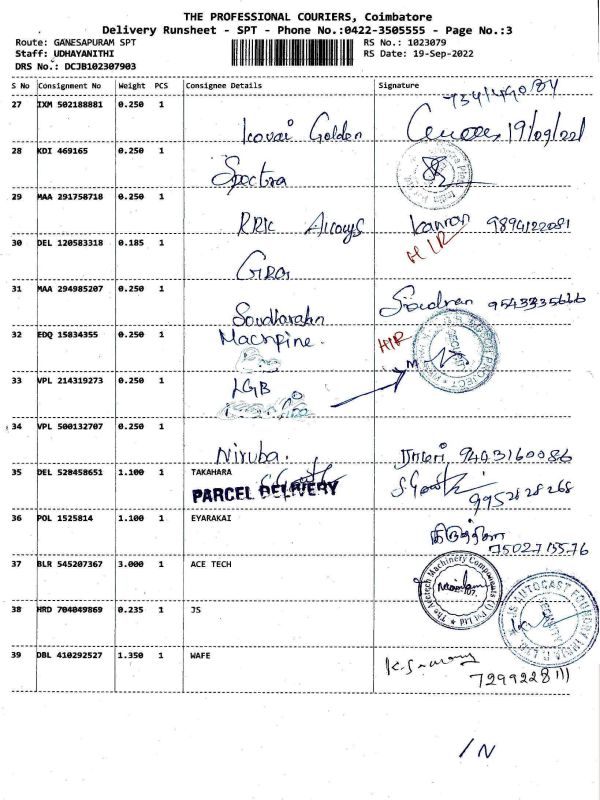 THE PROFESSIONAL COURIERS, Coimbatore
Delivery Runsheet - SPT - Phone No.:0422-3505555 - Page No.:3
Route: GANESAPURAM SPT RS No.: 1023079
Staff: UDHAYANITHI RS Date: 19-Sep-2022
DRS No.: DCJB102307903
S No Consignment No Weight PCS Consignee Details Signature
27 IXM 502188881 0.250 1
Kovai Golden 19/09/22
28 KDI 469165 0.250 1
Spectra
29 MAA 291758718 0.250 1
RRK Alloys Kannan 9894122081
30 DEL 120583318 0.185 1 HIR
31 MAA 294985207 0.250 1
9543335666
32 EDQ 15834355 0.250 1 Machpine. HIR
33 VPL 214319273 0.250 1 LGB M
34 VPL 500132707 0.250 1
Niruba. 9403160086
35 DEL 528458651 1.100 1 TAKAHARA
PARCEL DELIVERY 9952828268
36 POL 1525814 1.100 1 EYARAKAI
7502715576
37 BLR 545207367 3.000 1 ACE TECH
38 HRD 704049869 0.235 1 JS
39 DBL 410292527 1.350 1 WAFE
7299228111
/N